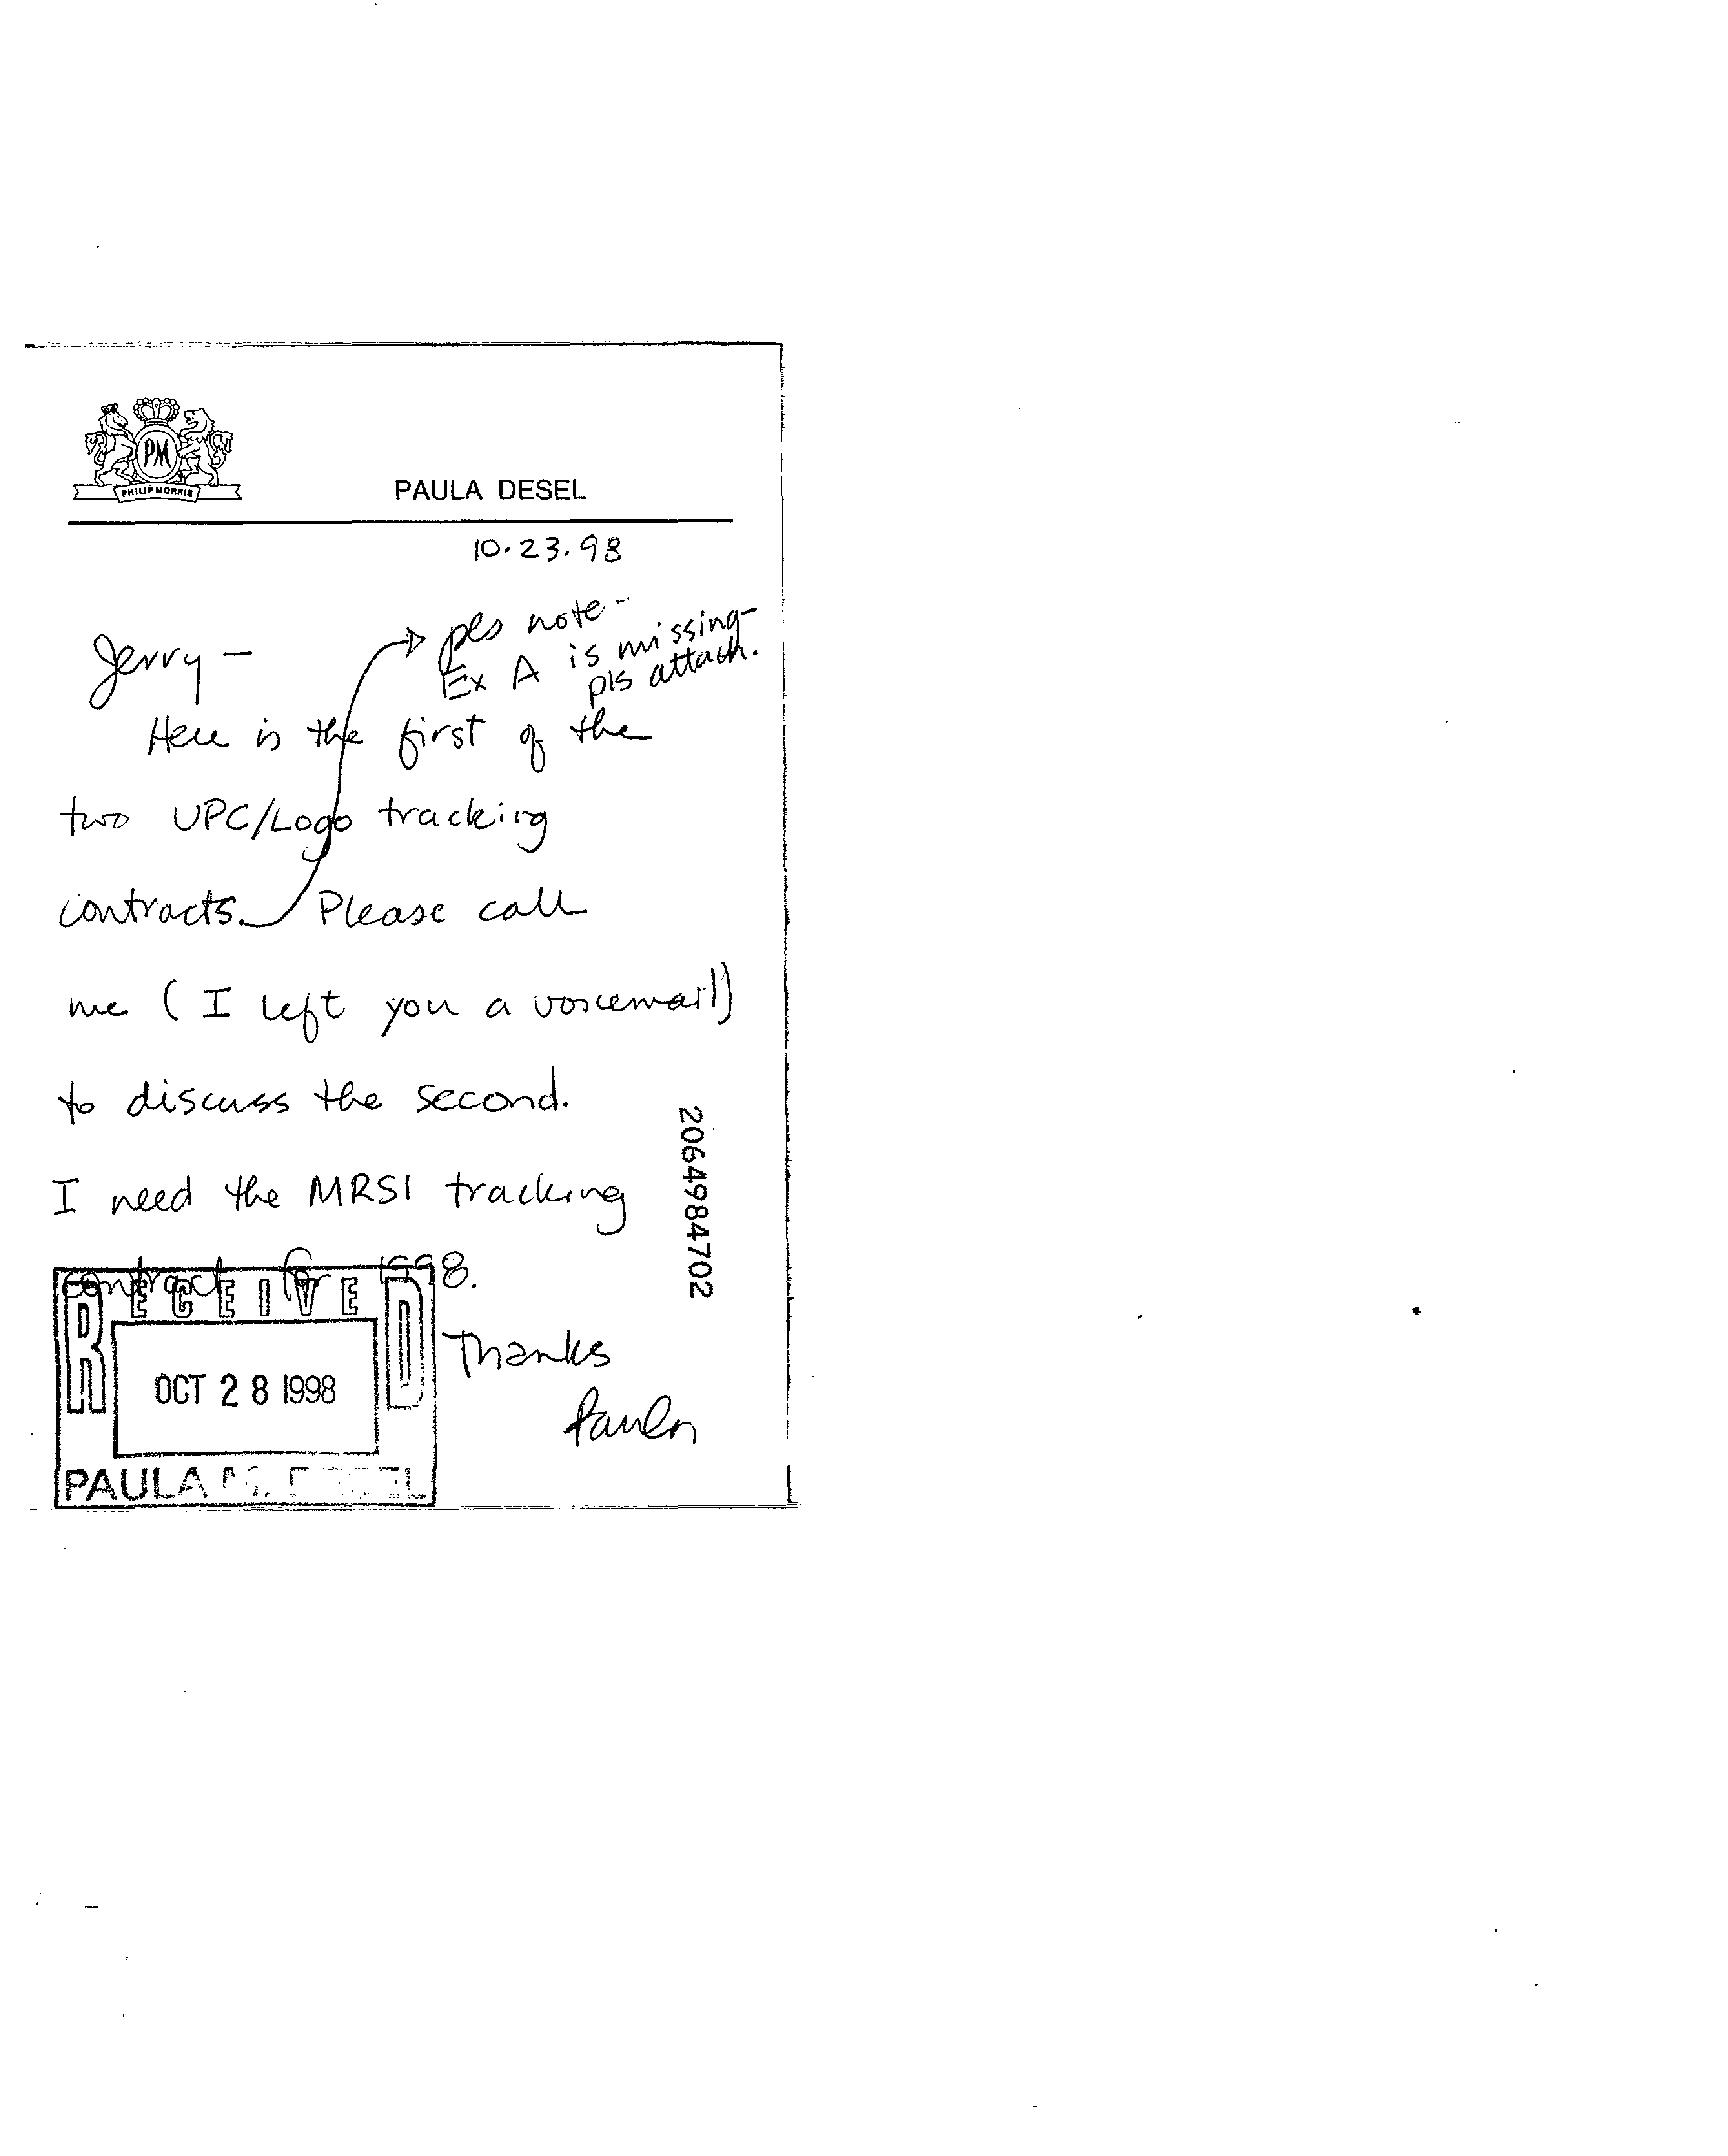 PM
PHILIP MORRIS
PAULA DESEL
10.23.98
pls note -
Ex A is missing -
pls attach.
Jerry -
Here is the first of the
two UPC/Logo tracking
contracts. Please call
me (I left you a voicemail)
to discuss the second.
I need the MRSI tracking
contract for 1998.
Thanks
Paula
RECEIVED
OCT 28 1998
PAULA M. DESEL
2064984702